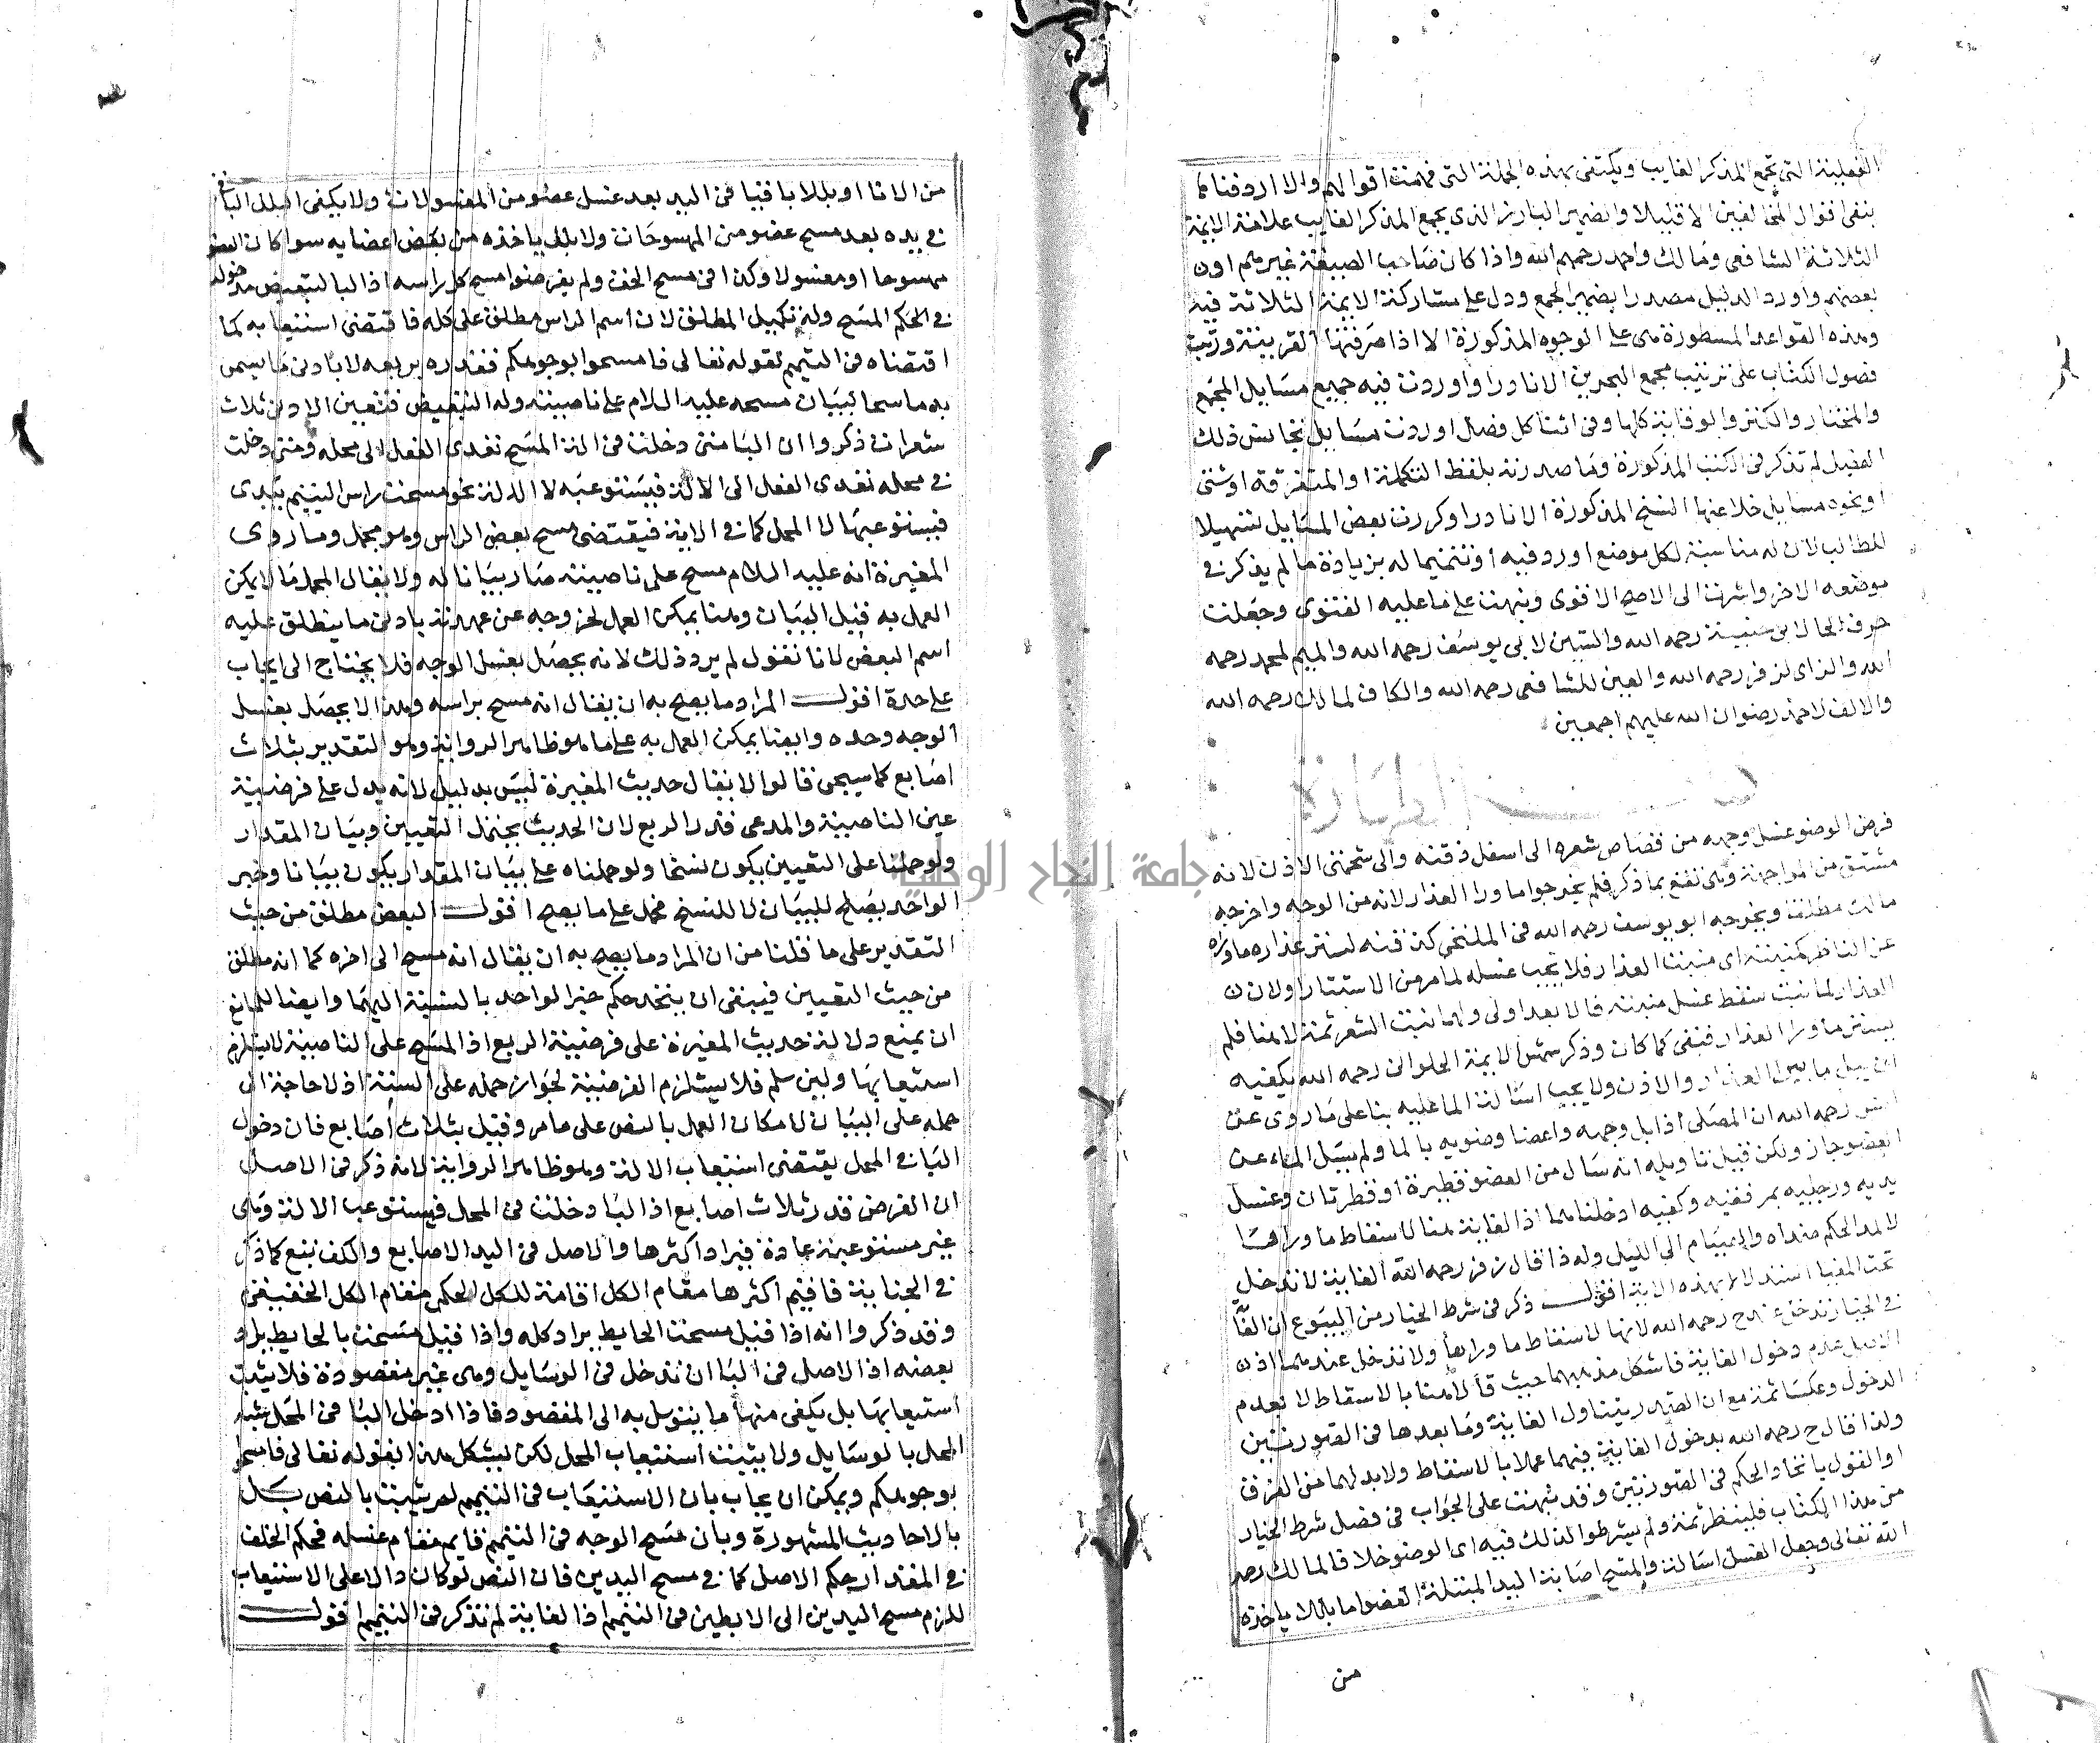 الفعلية التى تجمع المذكر الغايب ويكتفى بهذه الجملة التى فهمت اقوالهم والا اردفنا بما
ينفى اقوال المخالفين الا قليلا والضمير البارز الذى يجمع المذكر الغايب علامة الايمة
الثلاثة الشافعى ومالك واحمد رحمهم الله واذا كان صاحب الصيغة غيرهم اون
بعضهم واورد الدليل مصدرا بضمير الجمع ودل على مشاركة الايمة الثلاثة فيه
وهذه القواعد المسطورة هى على الوجوه المذكورة الا اذا صرفتها القرينة ورتبت
فصول الكتاب على ترتيب مجمع البحرين الا نادرا واوردت فيه جميع مسايل المجمع
والمختار والكنز والوقاية كلها وفى اثنا كل فصل اوردت مسايل تجانس ذلك
الفصل لم تذكر فى الكتب المذكورة وما صدرته بلفظ التكملة او المتفرقة او شتى
او نحوه مسايل خلا عنها النسخ المذكورة الا نادرا وكررت بعض المسايل تسهيلا
للطالب لان له مناسبة لكل موضع اورد فيه او تتميما له بزيادة ما لم يذكر فى
موضعه الاخر واشرت الى الاصح الاقوى ونبهت على ما عليه الفتوى وجعلت
حرف الحا لابى حنيفة رحمه الله والسين لابى يوسف رحمه الله والميم لمحمد رحمه
الله والزاى لزفر رحمه الله والعين للشافعى رحمه الله والكاف لمالك رحمه الله
والالف لاحمد رضوان الله عليهم اجمعين
الطهارة
فرض الوضو غسل وجهه من قصاص شعره الى اسفل ذقنه والى شحمتى الاذن لانه
مشتق من المواجهة وهى تقع بما ذكر فلم يخرجوا ما ورا العذار لانه من الوجه واخرجه
مالك مطلقا ويخرجه ابو يوسف رحمه الله فى الملتحى كذقنه لستر عذاره ما وراه
عن الناظر كمنبته اى منبت العذار فلا يجب غسله لما مر من الاستتار ولان
العذار لما نبت سقط غسل منبته فالابعد اولى ولهما نبت الشعر ثمة لا هنا فلم
يستتر ما ورا العذار فبقى كما كان وذكر شمس الايمة الحلوانى رحمه الله يكفيه
ان يبل ما بين العذار والاذن ولا يجب اسالة الما عليه بنا على ما روى عن
رحمه الله ان المصلى اذا بل وجهه واعضا وضويه بالما ولم يسل الماء عن
العضو جاز ولكن قيل تاويله انه سال من العضو قطرة او قطرتان وغسل
يديه ورجليه بمرفقيه وكعبيه ادخلناهما اذ الغاية هنا لاسقاط ما وراها
لا لمد الحكم ضد اه والصيام الى الليل ولهذا قال زفر رحمه الله الغاية لا تدخل
تحت المغيا استدلالا بهذه الاية اقول ذكر فى شرط الخيار من البيوع ان الغا
فى الخيار تدخل عند ح رحمه الله لانها لاسقاط ما وراها ولا تدخل عندهما اذ
الاصل عدم دخول الغاية فاشكل مذهبهما حيث قالا هنا بالاسقاط لا بعدم
الدخول وعكسا ثمة مع ان الصدر يتناول الغاية وما بعدها فى الصورتين
ولذا قال ح رحمه الله بدخول الغاية فيهما عملا بالاسقاط ولابد لهما من الفرق
او القول باتحاد الحكم فى الصورتين وقد نبهت على الجواب فى فصل شرط الخيار
من هذا الكتاب فلينظر ثمة ولم يشرطوا الدلك فيه اى الوضو خلافا لمالك رحمه
الله تعالى وجعل الغسل اسالة والمسح اصابة اليد المبتلة العضو اما بللا ياخذه
من
من الانا او بللا باقيا فى اليد بعد غسل عضو من المغسولات ولا يكفى البلل الباقى
فى يده بعد مسح عضو من الممسوحات ولا بلل ياخذه من بعض اعضايه سوا كان العضو
ممسوحا او مغسولا وكذا فى مسح الخف ولم يفرضوا مسح كل راسه اذ البا للتبعيض مدخوله
فى الحكم المسح وله تكميل المطلق لان اسم الراس مطلق على كله فاقتضى استيعابه كما
اقتضاه فى التيمم لقوله تعالى فامسحوا بوجوهكم فقدره بربعه لا بادنى ما يسمى
به ماسحا لبيان مسحه عليه السلام على ناصيته وله التبعيض فتعين الادنى ثلاث
شعرات ذكروا ان البا متى دخلت فى الة المسح تعدى الفعل الى محله ومتى دخلت
فى محله تعدى الفعل الى الالة فيستوعبه لا الالة نحو مسحت راس اليتيم بيدى
فيستوعبها لا المحل كما فى الاية فيقتضى مسح بعض الراس وهو مجمل وما روى
المغيرة انه عليه السلام مسح على ناصيته صار بيانا له ولا يقال المجمل ما لا يمكن
العمل به قبل البيان وهنا يمكن العمل لخروجه عن عهدته بادنى ما ينطلق عليه
اسم البعض لانا نقول لم يرد ذلك لانه يحصل بغسل الوجه فلا يحتاج الى ايجاب
على حدة اقول المراد ما يصح به ان يقال انه مسح براسه وهذا لا يحصل بغسل
الوجه وحده وايضا يمكن العمل به على ما هو ظاهر الرواية وهو التقدير بثلاث
اصابع كما سيجى قالوا لا يقال حديث المغيرة ليس بدليل لانه يدل على فرضية
عين الناصية والمدعى قدر الربع لان الحديث يحتمل التعيين وبيان المقدار
ولو حملنا على التعيين يكون نسخا ولو حملناه على بيان المقدار يكون بيانا وخبر
الواحد يصلح للبيان لا للنسخ فحمل على ما يصح اقول البعض مطلق من حيث
التقدير على ما قلنا من ان المراد ما يصح به ان يقال انه مسح الى اخره كما انه مطلق
من حيث التعيين فينبغى ان يتحد حكم خبر الواحد بالنسبة اليهما وايضا للمانع
ان يمنع دلالة حديث المغيرة على فرضية الربع اذ المسح على الناصية لا يستلزم
استيعابها ولين سلم فلا يستلزم الفرضية لجواز حمله على السنة اذ لا حاجة الى
حمله على البيان لامكان العمل بالنص على ما مر وقيل بثلاث اصابع فان دخول
البا فى المحل يقتضى استيعاب الالة وهو ظاهر الرواية لانه ذكر فى الاصل
ان الفرض قدر ثلاث اصابع اذ البا دخلت فى المحل فيستوعب الالة وهى
غير مستوعبة عادة فيراد اكثرها والاصل فى اليد الاصابع والكف تبع كما ذكر
فى الجناية فاقيم اكثرها مقام الكل اقامة للكل الحكمى مقام الكل الحقيقى
وقد ذكروا انه اذا قيل مسحت الحايط يراد كله واذا قيل مسحت بالحايط يراد
بعضه اذ الاصل فى البا ان تدخل فى الوسايل وهى غير مقصودة فلا يثبت
استيعابها بل يكفى منها ما يتوسل به الى المقصود فاذا ادخل البا فى المحل شبه
المحل بالوسايل ولا يثبت استيعاب المحل لكن يشكل هذا بقوله تعالى فامسحوا
بوجوهكم ويمكن ان يجاب بان الاستيعاب فى التيمم لم يثبت بالنص بل
بالاحاديث المشهورة وبان مسح الوجه فى التيمم قايم مقام غسله فحكم الخلف
فى المقدار حكم الاصل كما فى مسح اليدين فان النص لو كان دالا على الاستيعاب
للزم مسح اليدين الى الابطين فى التيمم اذ الغاية لم تذكر فى التيمم اقول
جامعة النجاح الوطنية